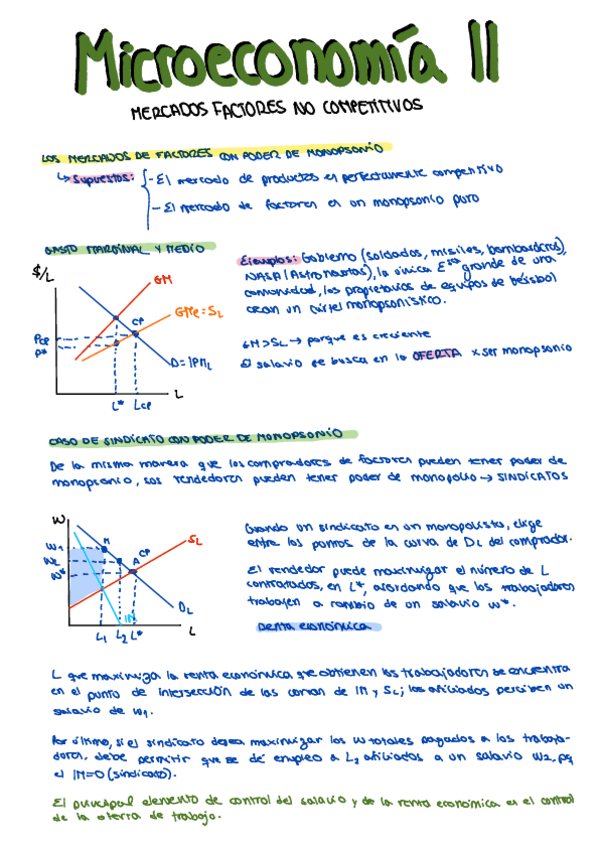 Microeconomía II
MERCADOS FACTORES NO COMPETITIVOS
LOS MERCADOS DE FACTORES CON PODER DE MONOPSONIO
↳ Supuestos: - El mercado de productos es perfectamente competitivo
- El mercado de factores es un monopsonio puro
GASTO MARGINAL Y MEDIO
Ejemplos: Gobierno (soldados, misiles, bombarderos),
NASA (Astronautas), la única Esa grande de una
comunidad, los propietarios de equipos de béisbol
crean un cártel monopsonístico.
GM > SL → porque es creciente
El salario se busca en la OFERTA x ser monopsonio
$/L
GM
GMe = SL
CP
PCP
P*
D = IPML
L
L*
LCP
CASO DE SINDICATO CON PODER DE MONOPSONIO
De la misma manera que los compradores de factores pueden tener poder de
monopsonio, sus vendedores pueden tener poder de monopolio → SINDICATOS
W
W1
W2
W*
M
CP
A
SL
DL
IM
L
L1
L2
L*
Cuando un sindicato es un monopolista, elige
entre los puntos de la curva de DL del comprador.
El vendedor puede maximizar el número de L
contratados, en L*, acordando que los trabajadores
trabajen a cambio de un salario w*.
Renta económica
L que maximiza la renta económica que obtienen los trabajadores se encuentra
en el punto de intersección de las curvas de IM y SL; los afiliados perciben un
salario de w1.
Por último, si el sindicato desea maximizar los w totales pagados a los trabaja-
dores, debe permitir que se dé empleo a L2 afiliados a un salario w2, pq
el IM=0 (sindicato).
El principal elemento de control del salario y de la renta económica es el control
de la oferta de trabajo.